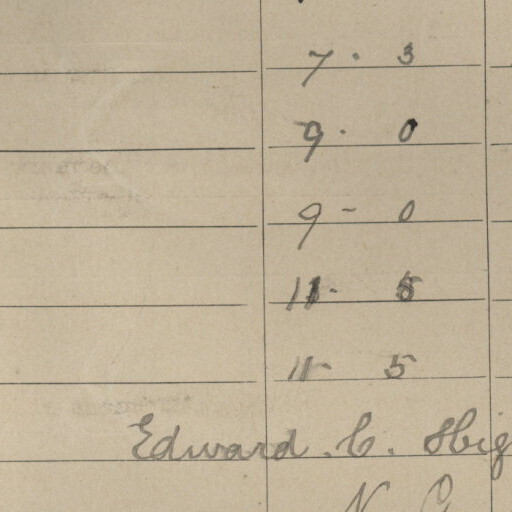 7 . 3
9 . 0
9 - 0
11 - 5
11 - 5
Edward . C .